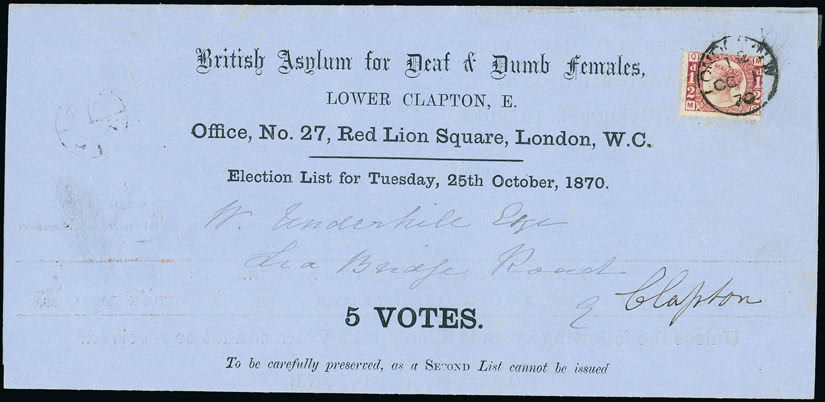 British Asylum for Deaf & Dumb Females,
LOWER CLAPTON, E.
Office, No. 27, Red Lion Square, London, W.C.
Election List for Tuesday, 25th October, 1870.
W. Underhill Esqr
Lea Bridge Road
E Clapton
5 VOTES.
To be carefully preserved, as a SECOND List cannot be issued
LONDON
OC
70